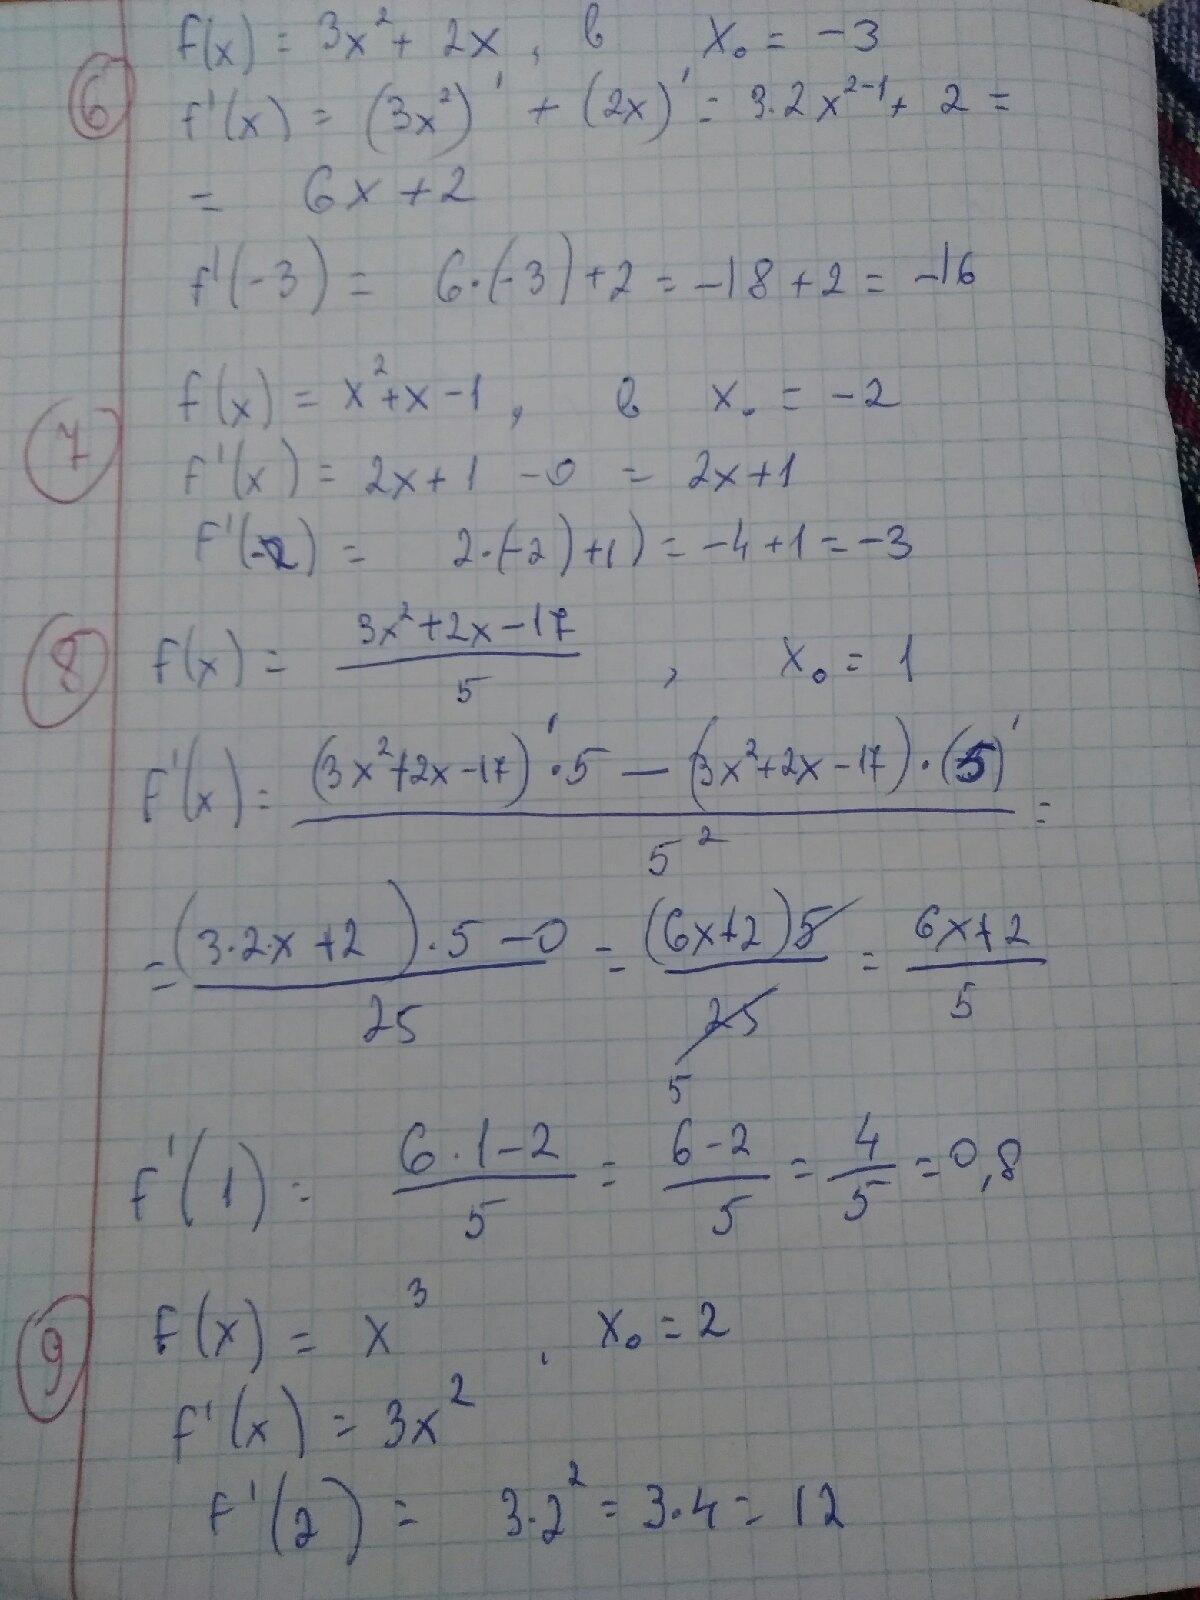 f(x) = 3x² + 2x , в x₀ = -3
6 f'(x) = (3x²)' + (2x)' = 3·2x²⁻¹ + 2 =
= 6x+2
f'(-3) = 6·(-3)+2 = -18+2 = -16
f(x) = x²+x-1 , в x₀ = -2
7 f'(x) = 2x+1 -0 = 2x+1
f'(-2) = 2·(-2)+1) = -4+1 = -3
8 f(x) = (3x²+2x-17)/5 , x₀ = 1
f'(x) = ((3x²+2x-17)'·5 - (3x²+2x-17)·(5)')/5² =
= ((3·2·x+2)·5-0)/25 = ((6x+2)5)/25 5 = (6x+2)/5
f'(1) = (6·1-2)/5 = (6-2)/5 = 4/5 = 0,8
9 f(x) = x³ , x₀ = 2
f'(x) = 3x²
f'(2) = 3·2² = 3·4 = 12